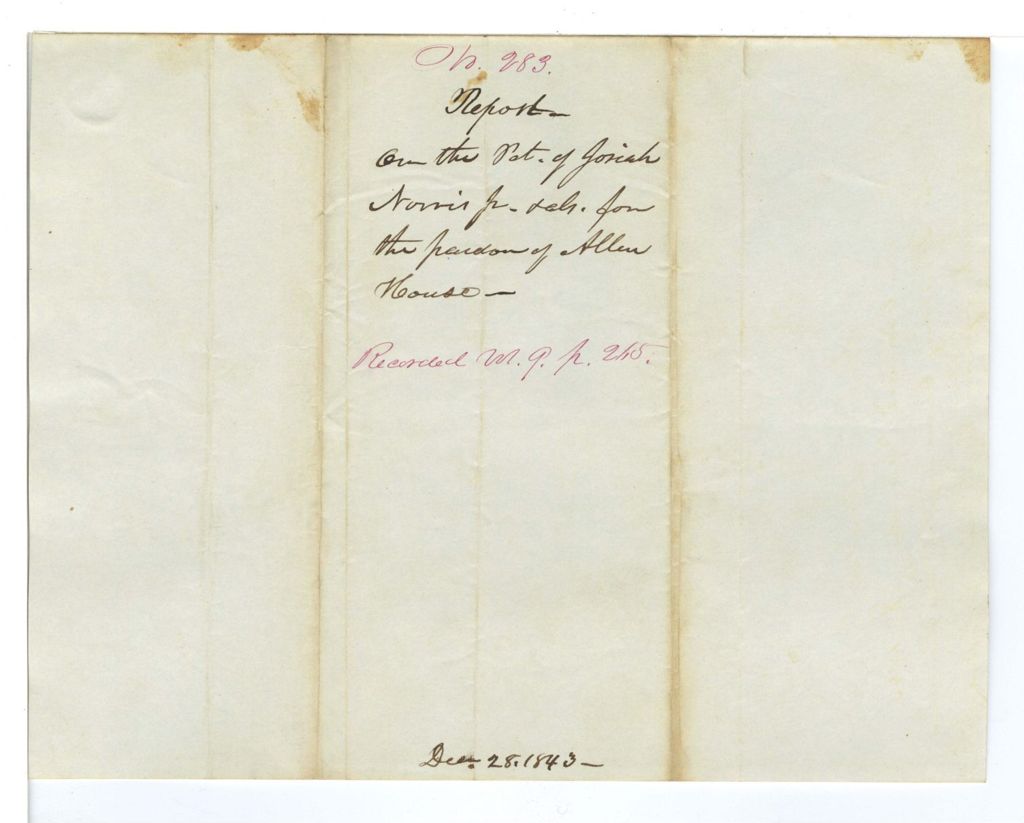 No. 283.
Report—
On the Pet. of Josiah
Norris Jr. & als. for
the pardon of Allen
House—
Recorded Vol. 9. p. 245.
Dec. 28. 1843—